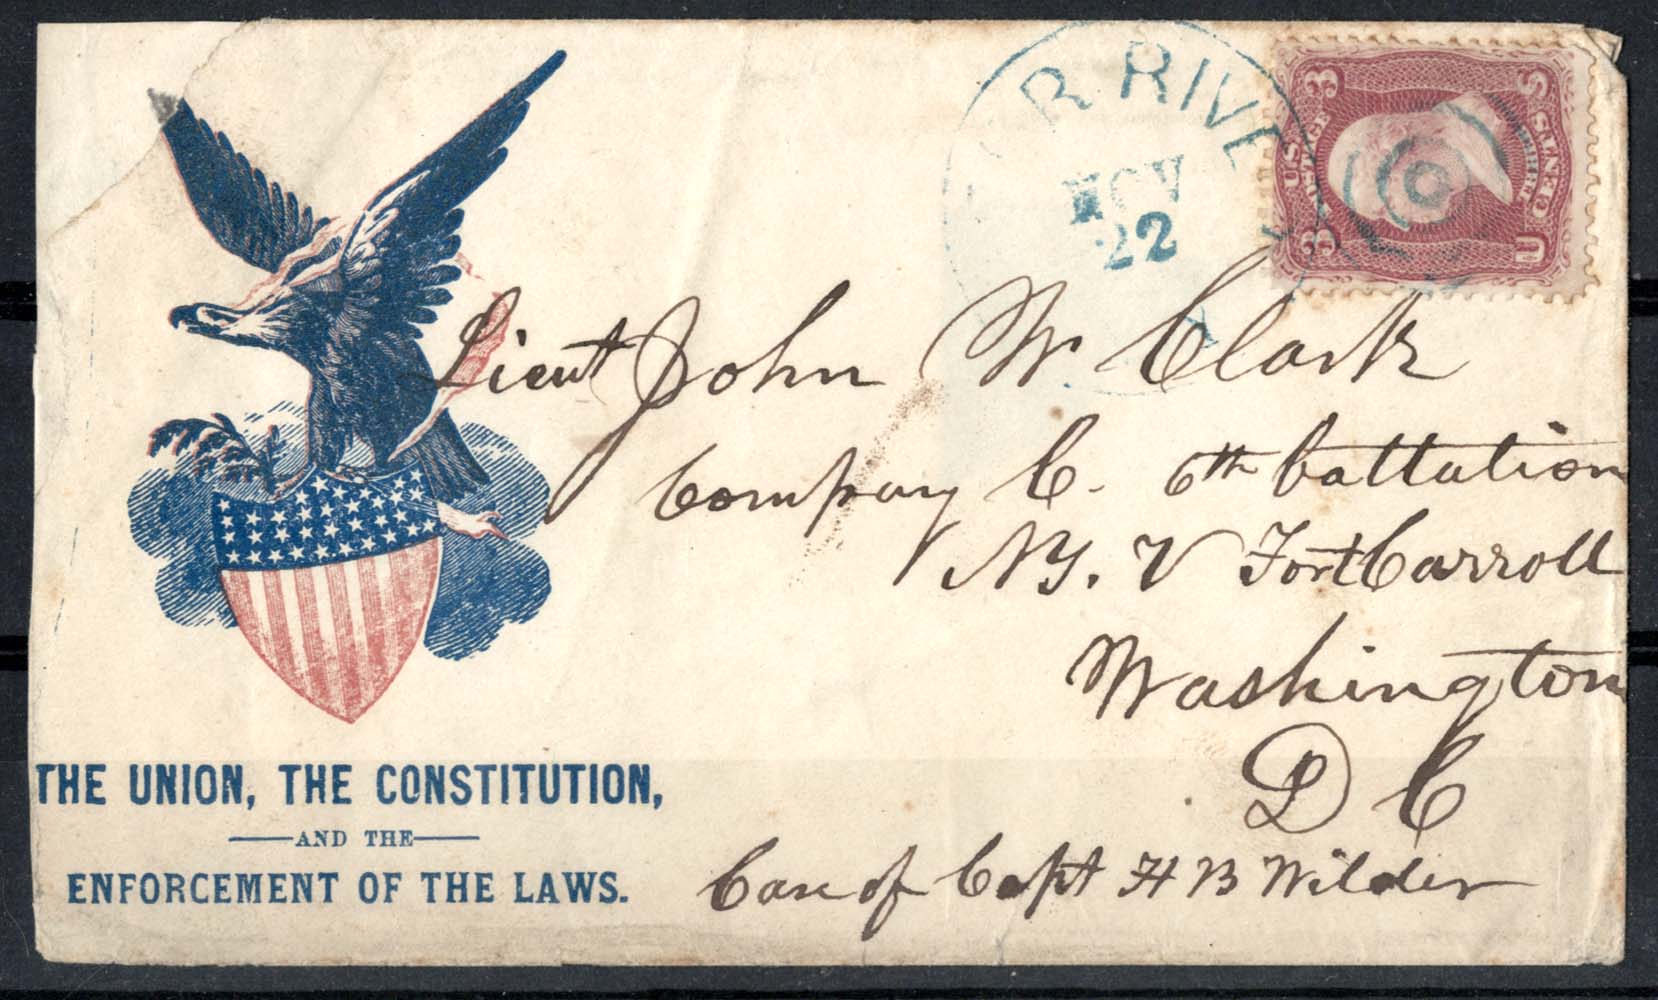 R RIVE
NOV
22
3 3
U.S. POSTAGE
THREE CENTS
U S
Lieut John W Clark
Company C. 6th battation
NY. V Fort Carroll
Washington
D C
Care of Capt H B Wilder
THE UNION, THE CONSTITUTION,
AND THE
ENFORCEMENT OF THE LAWS.